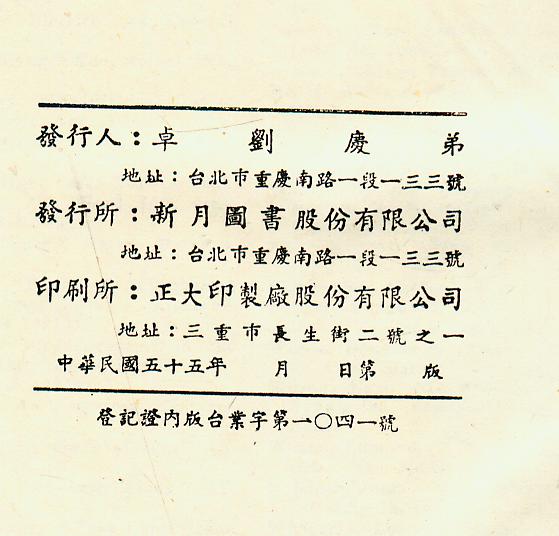 發行人：卓劉慶弟
地址：台北市重慶南路一段一三三號
發行所：新月圖書股份有限公司
地址：台北市重慶南路一段一三三號
印刷所：正大印製廠股份有限公司
地址：三重市長生街二號之一
中華民國五十五年　月　日第　版
登記證內版台業字第一〇四一號